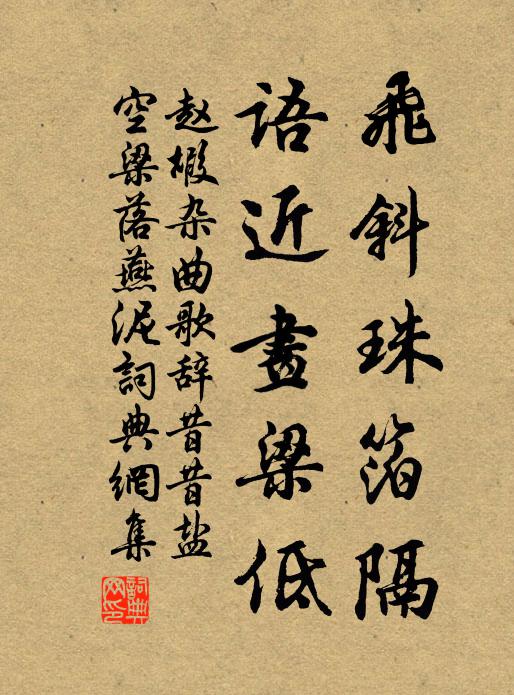 飛斜珠箔隔
語近畫梁低
赵嘏杂曲歌辞昔昔盐
空梁落燕泥詞典網集
詞典網印